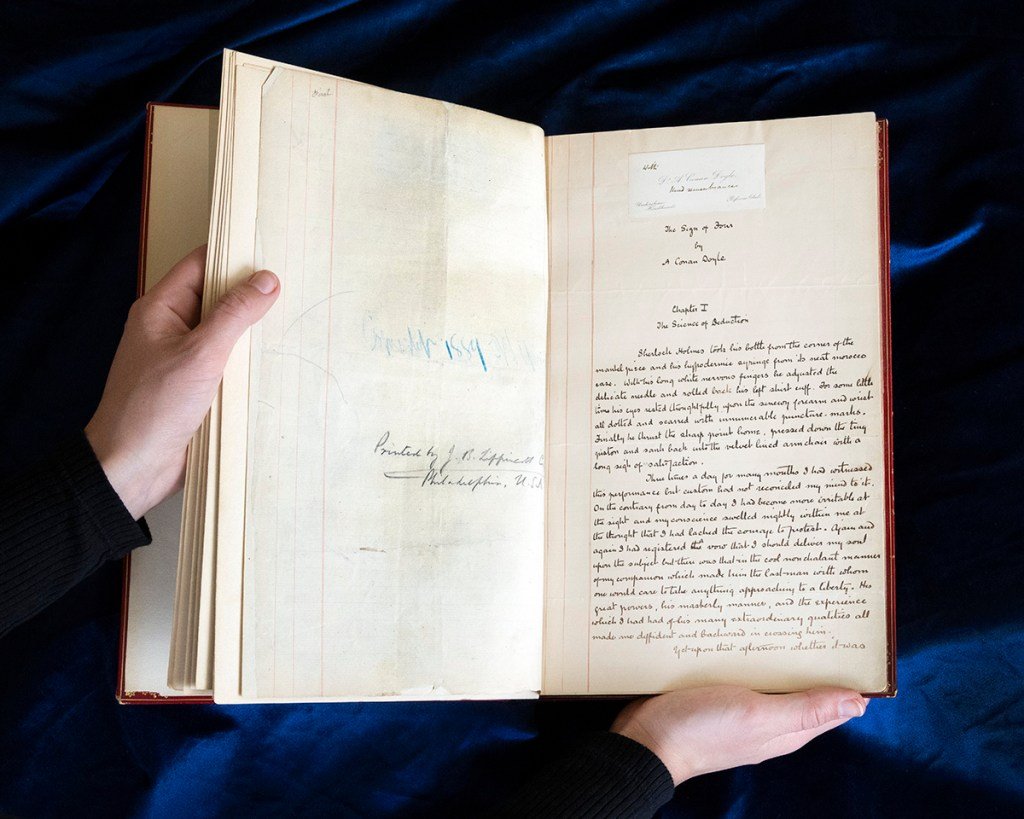 First
Printed by J. B. Lippincott
Philadelphia, U.S.A
With
Dr. A Conan Doyle
kind remembrances
Reform Club
The Sign of Four
by
A Conan Doyle
Chapter I
The Science of Deduction
Sherlock Holmes took his bottle from the corner of the
mantelpiece and his hypodermic syringe from its neat morocco
case. With his long white nervous fingers he adjusted the
delicate needle and rolled back his left shirt cuff. For some little
time his eyes rested thoughtfully upon the sinewy forearm and wrist
all dotted and scarred with innumerable puncture-marks.
Finally he thrust the sharp point home, pressed down the tiny
piston and sank back into the velvet lined arm chair with a
long sigh of satisfaction.
Three times a day for many months I had witnessed
this performance but custom had not reconciled my mind to it.
On the contrary from day to day I had become more irritable at
the sight and my conscience swelled nightly within me at
the thought that I had lacked the courage to protest. Again and
again I had registered the vow that I should deliver my soul
upon the subject but there was that in the cool nonchalant manner
of my companion which made him the last man with whom
one would care to take anything approaching to a liberty. His
great powers, his masterly manner, and the experience
which I had had of his many extraordinary qualities all
made me diffident and backward in crossing him.
Yet upon that afternoon whether it was